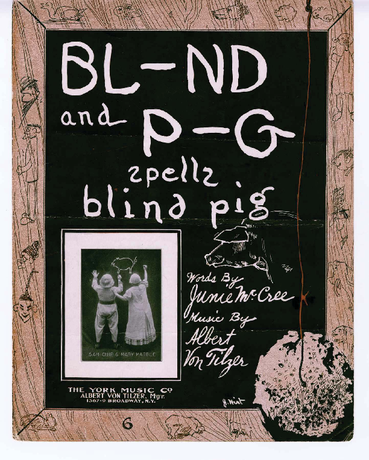 BL-ND
and
P-G
spells
blind pig
Words By
Junie McCree
Music By
Albert
Von Tilzer
THE YORK MUSIC CO
ALBERT VON TILZER, Mgr.
1367-9 BROADWAY, N.Y.
6